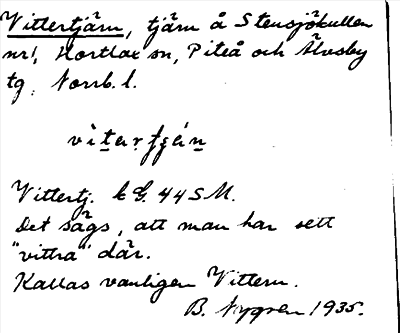 Vittertjärn, tjärn å Stensjökullen
nr 1, Hortlax sn, Piteå och Älvsby
tg, Norrb. l.
Vittertj. E G. 44 S M.
Det sägs, att man har sett
"vittra" där.
Kallas vanligen Vittern.
B. Nygren 1935.